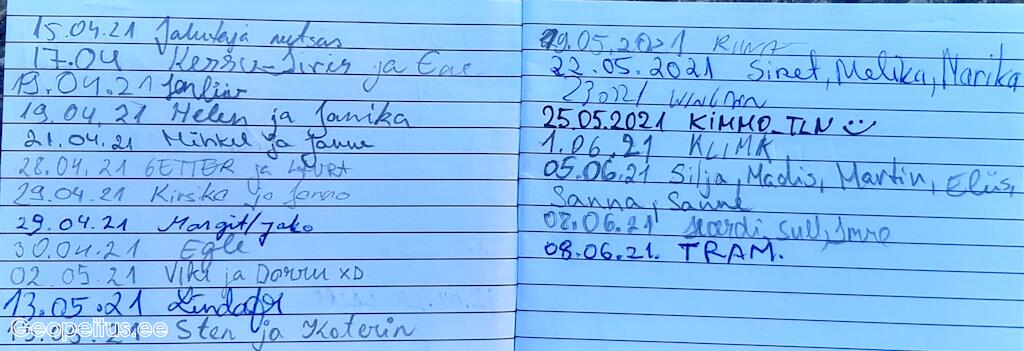 15.04.21 Jalutaja
17.04 Kersu-Siris ja Eae
19.04.21
19.04.21 Helen ja Janika
21.04.21 Mihkel ja Janne
28.04.21 GETTER ja
29.04.21 Kirsika ja Janno
29.04.21 Margit/Jako
30.04.21 Egle
02.05.21 Viki ja xD
13.05.21
.21 Sten ja Katerin
19.05.2021
22.05.2021 Siret, Melika, Marika
25.05.2021 KIMMO_TLN
1.06.21 KLIMK
05.06.21 Silja, Madis, Martin, Eliis,
Sanna, Sanne
08.06.21
08.06.21. TRAM.
Geopeitus.ee